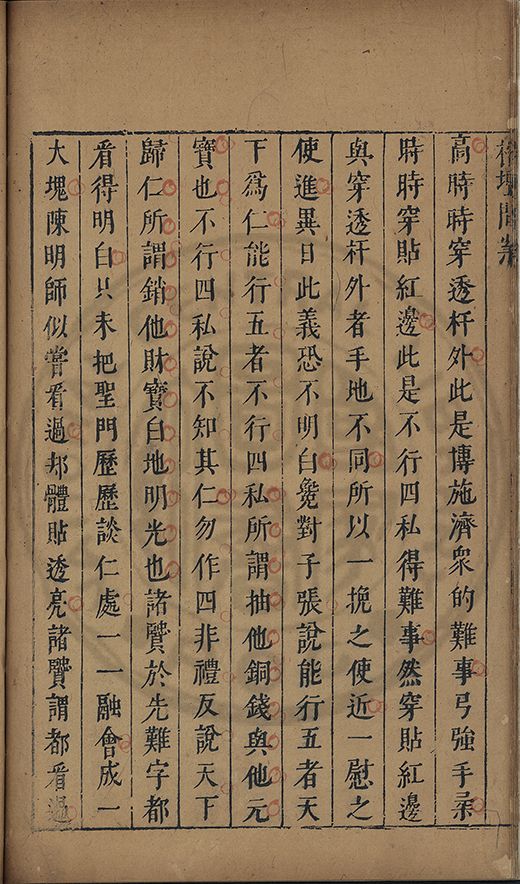 高時時穿透杆外此是博施濟衆的難事弓強手柔
時時穿貼紅邊此是不行四私得難事然穿貼紅邊
與穿透杆外者手地不同所以一挽之使近一慰之
使進異日此義恐不明白毚對子張說能行五者天
下爲仁能行五者不行四私所謂抽他銅錢與他元
寶也不行四私說不知其仁勿作四非禮反說天下
歸仁所謂銷他財寶白地明光也諸贒於先難字都
看得明白只未把聖門歷歷談仁處一一融會成一
大塊陳明師似嘗看過却體貼透亮諸贒謂都看過